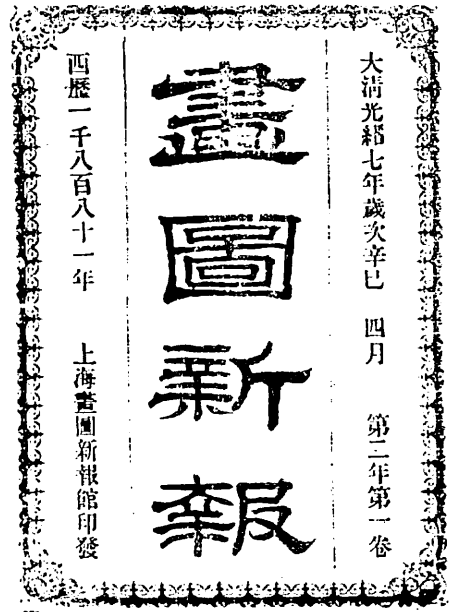 大清光緒七年歲次辛巳 四月 第二年第一卷
畫圖新報
西歷一千八百八十一年 上海畫圖新報館印發